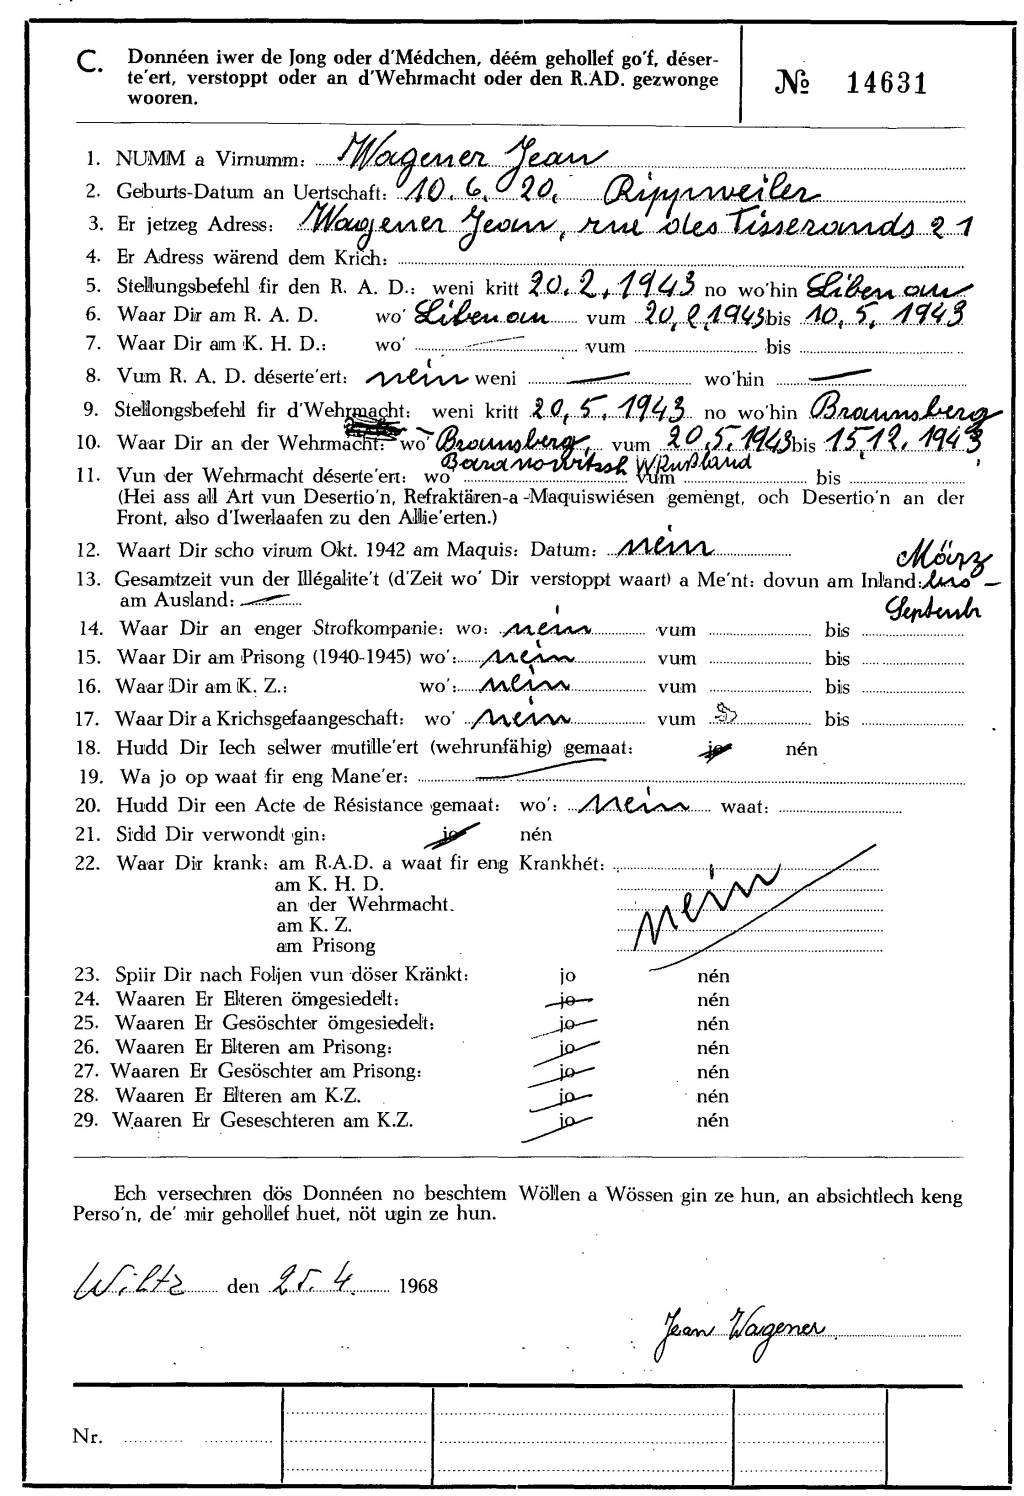 C. Donnéen iwer de Jong oder d'Médchen, déém gehollef go'f, déser-
te'ert, verstoppt oder an d'Wehrmacht oder den R.AD. gezwonge
wooren.
№ 14631
1. NUMM a Virnumm: Wagener Jean
2. Geburts-Datum an Uertschaft: 10. 6. 20. Rippweiler
3. Er jetzeg Adress: Wagener Jean, rue des Tisserands 21
4. Er Adress wärend dem Krich:
5. Stellungsbefehl fir den R. A. D.: weni kritt 20.2.1943 no wo'hin Libenau
6. Waar Dir am R. A. D. wo' Libenau vum 20.2.1943 bis 10.5.1943
7. Waar Dir am K. H. D.: wo' vum bis
8. Vum R. A. D. déserte'ert: nein weni wo'hin
9. Stellongsbefehl fir d'Wehrmacht: weni kritt 20.5.1943 no wo'hin Braunsberg
10. Waar Dir an der Wehrmacht: wo' Braunsberg, vum 20.5.1943 bis 15.12.1943
Baranowitsch W.Rußland
11. Vun der Wehrmacht déserte'ert: wo' vum bis
(Hei ass all Art vun Desertio'n, Refraktären-a-Maquiswiésen gemengt, och Desertio'n an der
Front, also d'Iwerlaafen zu den Allie'erten.)
12. Waart Dir scho virum Okt. 1942 am Maquis: Datum: nein
März
13. Gesamtzeit vun der Illégalite't (d'Zeit wo' Dir verstoppt waart) a Me'nt: dovun am Inland: bis
am Ausland:
Septembr
14. Waar Dir an enger Strofkompanie: wo: nein vum bis
15. Waar Dir am Prisong (1940-1945) wo': nein vum bis
16. Waar Dir am K. Z.: wo': nein vum bis
17. Waar Dir a Krichsgefaangeschaft: wo' nein vum bis
18. Hudd Dir Iech selwer mutille'ert (wehrunfähig) gemaat: jo nén
19. Wa jo op waat fir eng Mane'er:
20. Hudd Dir een Acte de Résistance gemaat: wo': nein waat:
21. Sidd Dir verwondt gin: jo nén
22. Waar Dir krank: am R.A.D. a waat fir eng Krankhét:
am K. H. D.
an der Wehrmacht. nein
am K. Z.
am Prisong
23. Spiir Dir nach Foljen vun döser Kränkt: jo nén
24. Waaren Er Elteren ömgesiedelt: jo nén
25. Waaren Er Gesöschter ömgesiedelt: jo nén
26. Waaren Er Elteren am Prisong: jo nén
27. Waaren Er Gesöschter am Prisong: jo nén
28. Waaren Er Elteren am K.Z. jo nén
29. Waaren Er Geseschteren am K.Z. jo nén
Ech versechren dös Donnéen no beschtem Wöllen a Wössen gin ze hun, an absichtlech keng
Perso'n, de' mir gehollef huet, nöt ugin ze hun.
Wiltz den 25.4. 1968
Jean Wagener
Nr.